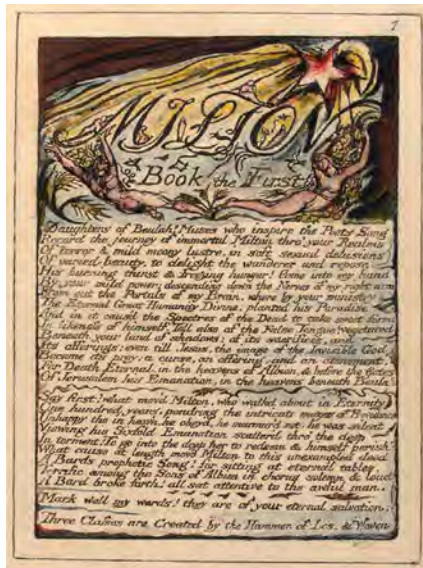 1
MILTON
Book the First
Daughters of Beulah! Muses who inspire the Poets Song
Record the journey of immortal Milton thro' your Realms
Of terror & mild moony lustre, in soft sexual delusions
Of varied beauty, to delight the wanderer and repose
His burning thirst & freezing hunger! Come into my hand
By your mild power; descending down the Nerves of my right arm
From out the Portals of my Brain, where by your ministry
The Eternal Great Humanity Divine, planted his Paradise,
And in it caus'd the Spectres of the Dead to take sweet forms
In likeness of himself. Tell also of the False Tongue! vegetated
Beneath your land of shadows: of its sacrifices, and
Its offerings; even till Jesus, the image of the Invisible God
Became its prey; a curse, an offering, and an atonement,
For Death Eternal in the heavens of Albion, & before the Gates
Of Jerusalem his Emanation, in the heavens beneath Beulah
Say first! what mov'd Milton, who walkd about in Eternity
One hundred years, pondring the intricate mazes of Providence
Unhappy tho in heav'n, he obey'd, he murmur'd not, he was silent
Viewing his Sixfold Emanation scatter'd thro' the deep
In torment! To go into the deep her to redeem & himself perish?
What cause at length mov'd Milton to this unexampled deed
A Bards prophetic Song! for sitting at eternal tables,
Terrific among the Sons of Albion in chorus solemn & loud
A Bard broke forth! all sat attentive to the awful man.
Mark well my words! they are of your eternal salvation:
Three Classes are Created by the Hammer of Los, & Woven